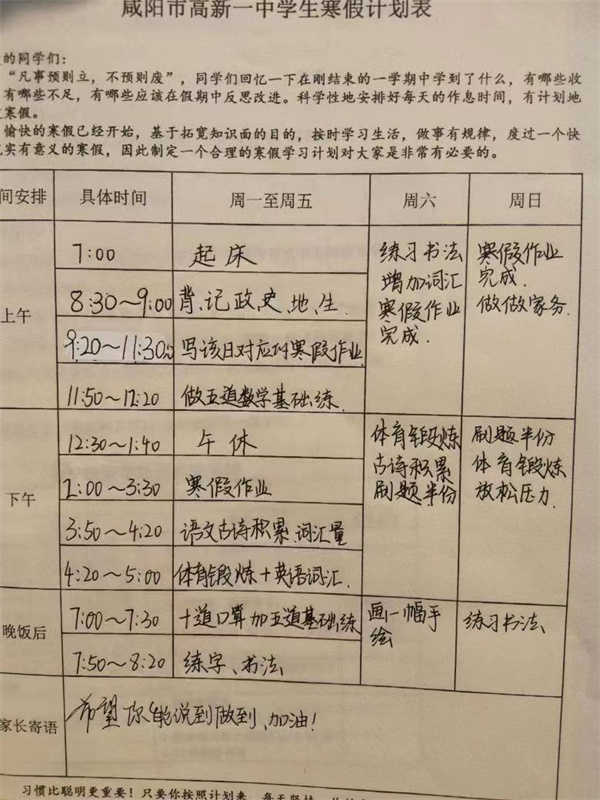 咸阳市高新一中学生寒假计划表
的同学们：
“凡事预则立，不预则废”，同学们回忆一下在刚结束的一学期中学到了什么，有哪些收
有哪些不足，有哪些应该在假期中反思改进。科学性地安排好每天的作息时间，有计划地
寒假。
愉快的寒假已经开始，基于拓宽知识面的目的，按时学习生活，做事有规律，度过一个快
实有意义的寒假，因此制定一个合理的寒假学习计划对大家是非常有必要的。
间安排 具体时间 周一至周五 周六 周日
上午
7:00 起床
8:30~9:00 背、记政、史、地、生.
9:20~11:30 写该日对应的寒假作业
11:50~12:20 做五道数学基础练.
练习书法
增加词汇
寒假作业
完成.
寒假作业
完成.
做做家务.
下午
12:30~1:40 午休
2:00~3:30 寒假作业
3:50~4:20 语文古诗积累.词汇量
4:20~5:00 体育锻炼+英语词汇.
体育锻炼
古诗积累
刷题半份
刷题半份
体育锻炼
放松压力.
晚饭后
7:00~7:30 十道口算加五道基础练
7:50~8:20 练字、书法
画一幅手
绘
练习书法
家长寄语 希望你能说到做到、加油！
习惯比聪明更重要！只要你按照计划来，每天坚持，